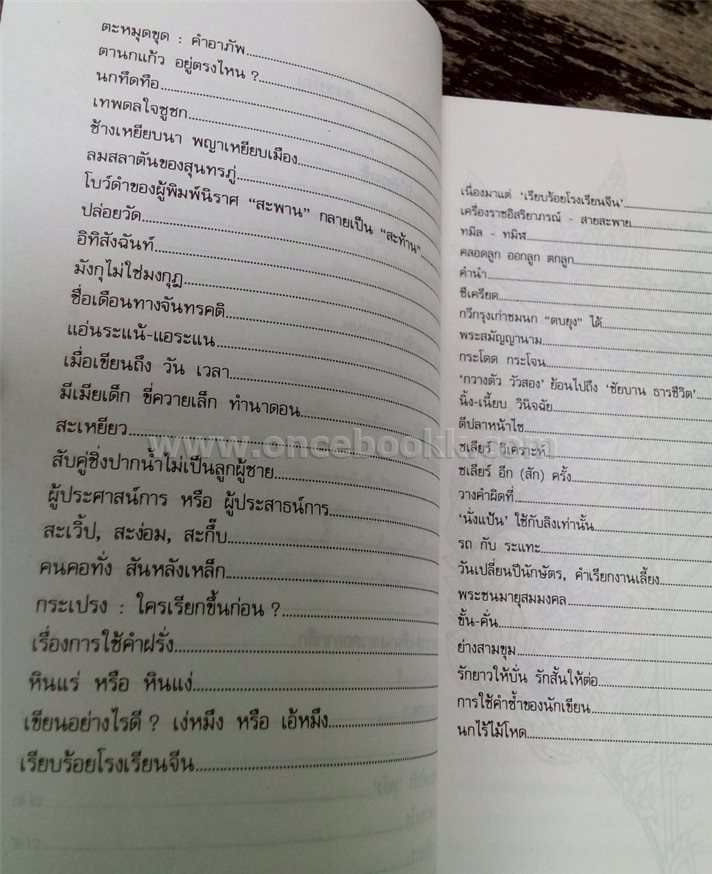 ตะหมุดขุด : คำอาภัพ
ตานกแก้ว อยู่ตรงไหน ?
นกทึดทือ
เทพดลใจชูชก
ช้างเหยียบนา พญาเหยียบเมือง
ลมสลาตันของสุนทรภู่
โบว์ดำของผู้พิมพ์นิราศ “สะพาน” กลายเป็น “สะท้าน”
ปล่อยวัด
อิทิสังฉันท์
มังกุไม่ใช่มงกุฎ
ชื่อเดือนทางจันทรคติ
แอ่นระแน้-แอระแน
เมื่อเขียนถึง วัน เวลา
มีเมียเด็ก ขี่ควายเล็ก ทำนาดอน
สะเหยียว
สับคู่ชิ่งปากน้ำไม่เป็นลูกผู้ชาย
ผู้ประศาสน์การ หรือ ผู้ประสาธน์การ
สะเวิ้ป, สะง่อม, สะกึ๊บ
คนคอทั่ง สันหลังเหล็ก
กระเปรง : ใครเรียกขึ้นก่อน ?
เรื่องการใช้คำฝรั่ง
หินแร่ หรือ หินแง่
เขียนอย่างไรดี ? เง่หมึง หรือ เอ้หมึง
เรียบร้อยโรงเรียนจีน
เนื่องมาแต่ ‘เรียบร้อยโรงเรียนจีน’
เครื่องราชอิสริยาภรณ์ - สายสะพาย
ทมิล - ทมิฬ
คลอดลูก ออกลูก ตกลูก
คำนำ
ซีเครียด
กวีกรุงเก่าชมนก “ตบยุง” ได้
พระสมัญญานาม
กระโดด กระโจน
‘กวางตัว วัวสอง’ ย้อนไปถึง ‘ชัยบาน ธารชีวิต’
นิ้ง-เนี้ยบ วินิจฉัย
ตีปลาหน้าไซ
ชเลียร์ วิเคราะห์
ชเลียร์ อีก (สัก) ครั้ง
วางคำผิดที่
‘นั่งแป้น’ ใช้กับลิงเท่านั้น
รถ กับ ระแทะ
วันเปลี่ยนปีนักษัตร, คำเรียกงานเลี้ยง
พระชนมายุสมมงคล
ขั้น-คั่น
ย่างสามขุม
รักยาวให้บั่น รักสั้นให้ต่อ
การใช้คำซ้ำของนักเขียน
นกไร้ไม้โหด
www.oncebookk.com